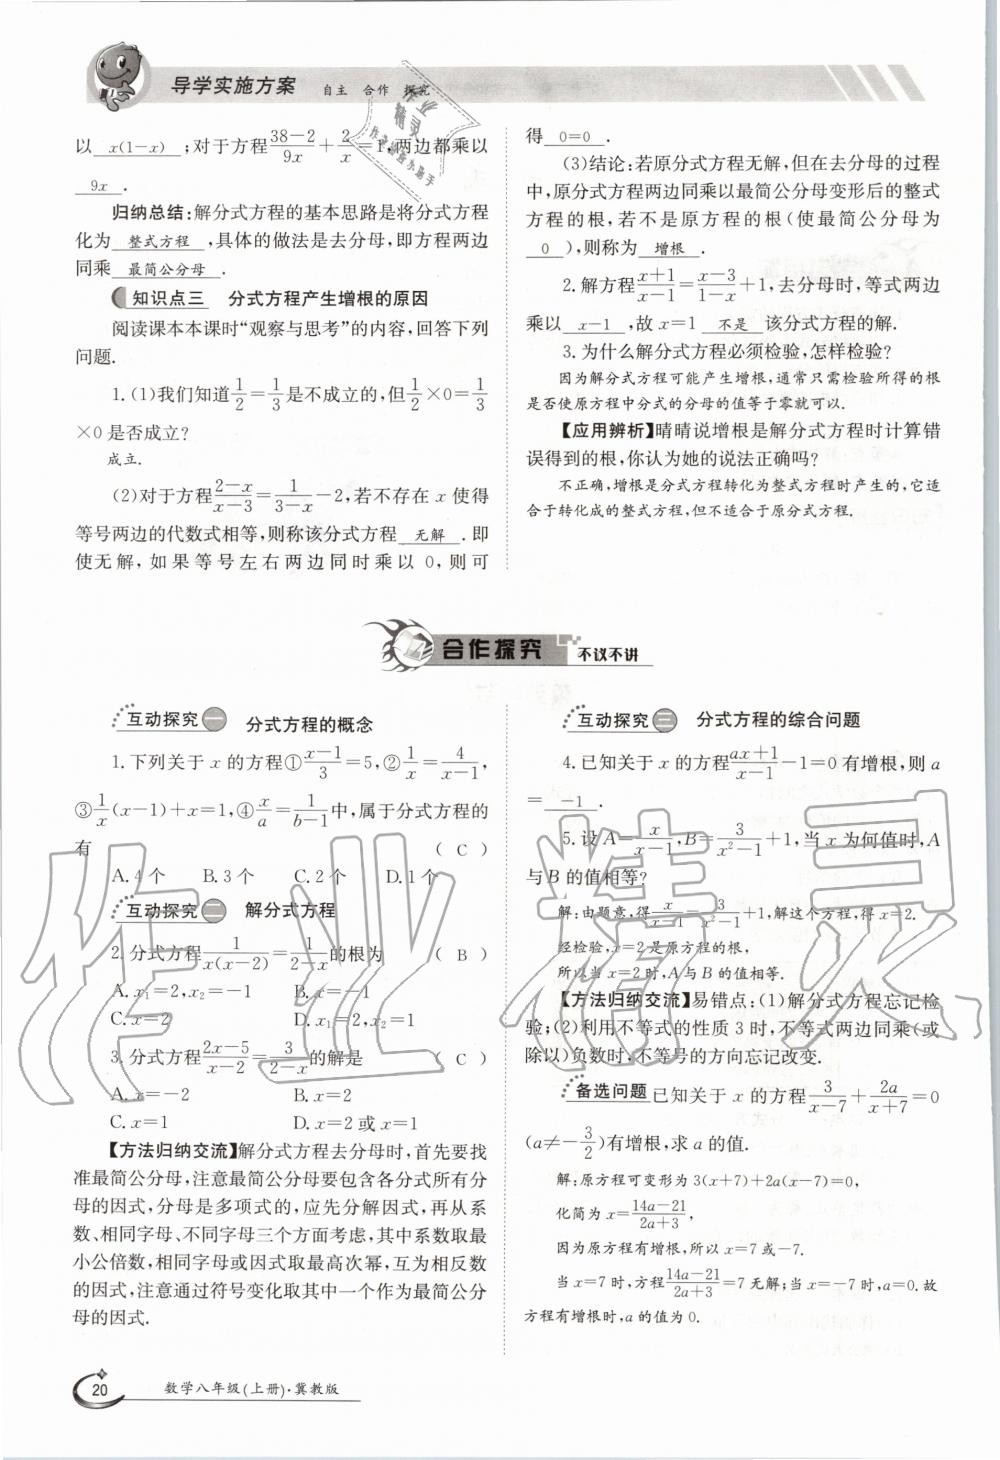 导学实施方案 自主 合作 探究
以 x(1-x) ;对于方程\frac{38-2}{9x}+\frac{2}{x}=1,两边都乘以
9x .
归纳总结:解分式方程的基本思路是将分式方程
化为 整式方程 ,具体的做法是去分母,即方程两边
同乘 最简公分母 .
知识点三 分式方程产生增根的原因
阅读课本本课时“观察与思考”的内容,回答下列
问题.
1.(1)我们知道\frac{1}{2}=\frac{1}{3}是不成立的,但\frac{1}{2}×0=\frac{1}{3}
×0是否成立?
成立.
(2)对于方程\frac{2-x}{x-3}=\frac{1}{3-x}-2,若不存在x使得
等号两边的代数式相等,则称该分式方程 无解 .即
使无解,如果等号左右两边同时乘以0,则可
得 0=0 .
(3)结论:若原分式方程无解,但在去分母的过程
中,原分式方程两边同乘以最简公分母变形后的整式
方程的根,若不是原方程的根(使最简公分母为
0 ),则称为 增根 .
2.解方程\frac{x+1}{x-1}=\frac{x-3}{1-x}+1,去分母时,等式两边
乘以 x-1 ,故x=1 不是 该分式方程的解.
3.为什么解分式方程必须检验,怎样检验?
因为解分式方程可能产生增根,通常只需检验所得的根
是否使原方程中分式的分母的值等于零就可以.
【应用辨析】晴晴说增根是解分式方程时计算错
误得到的根,你认为她的说法正确吗?
不正确,增根是分式方程转化为整式方程时产生的,它适
合于转化成的整式方程,但不适合于原分式方程.
合作探究 不议不讲
互动探究一 分式方程的概念
1.下列关于x的方程①\frac{x-1}{3}=5,②\frac{1}{x}=\frac{4}{x-1},
③\frac{1}{x}(x-1)+x=1,④\frac{x}{a}=\frac{1}{b-1}中,属于分式方程的
有 ( C )
A.4个 B.3个 C.2个 D.1个
互动探究二 解分式方程
2.分式方程\frac{1}{x(x-2)}=\frac{1}{2-x}的根为 ( B )
A.x₁=2,x₂=-1 B.x=-1
C.x=2 D.x₁=2,x₂=1
3.分式方程\frac{2x-5}{x-2}=\frac{3}{2-x}的解是 ( C )
A.x=-2 B.x=2
C.x=1 D.x=2或x=1
【方法归纳交流】解分式方程去分母时,首先要找
准最简公分母,注意最简公分母要包含各分式所有分
母的因式,分母是多项式的,应先分解因式,再从系
数、相同字母、不同字母三个方面考虑,其中系数取最
小公倍数,相同字母或因式取最高次幂,互为相反数
的因式,注意通过符号变化取其中一个作为最简公分
母的因式.
互动探究三 分式方程的综合问题
4.已知关于x的方程\frac{ax+1}{x-1}-1=0有增根,则a
= -1 .
5.设A=\frac{x}{x-1},B=\frac{3}{x²-1}+1,当x为何值时,A
与B的值相等?
解:由题意,得\frac{x}{x-1}=\frac{3}{x²-1}+1,解这个方程,得x=2.
经检验,x=2是原方程的根,
所以当x=2时,A与B的值相等.
【方法归纳交流】易错点:(1)解分式方程忘记检
验;(2)利用不等式的性质3时,不等式两边同乘(或
除以)负数时,不等号的方向忘记改变.
备选问题 已知关于x的方程\frac{3}{x-7}+\frac{2a}{x+7}=0
(a≠-\frac{3}{2})有增根,求a的值.
解:原方程可变形为3(x+7)+2a(x-7)=0,
化简为x=\frac{14a-21}{2a+3},
因为原方程有增根,所以x=7或-7.
当x=7时,方程\frac{14a-21}{2a+3}=7无解;当x=-7时,a=0.故
方程有增根时,a的值为0.
20 数学八年级(上册)·冀教版
作业精灵